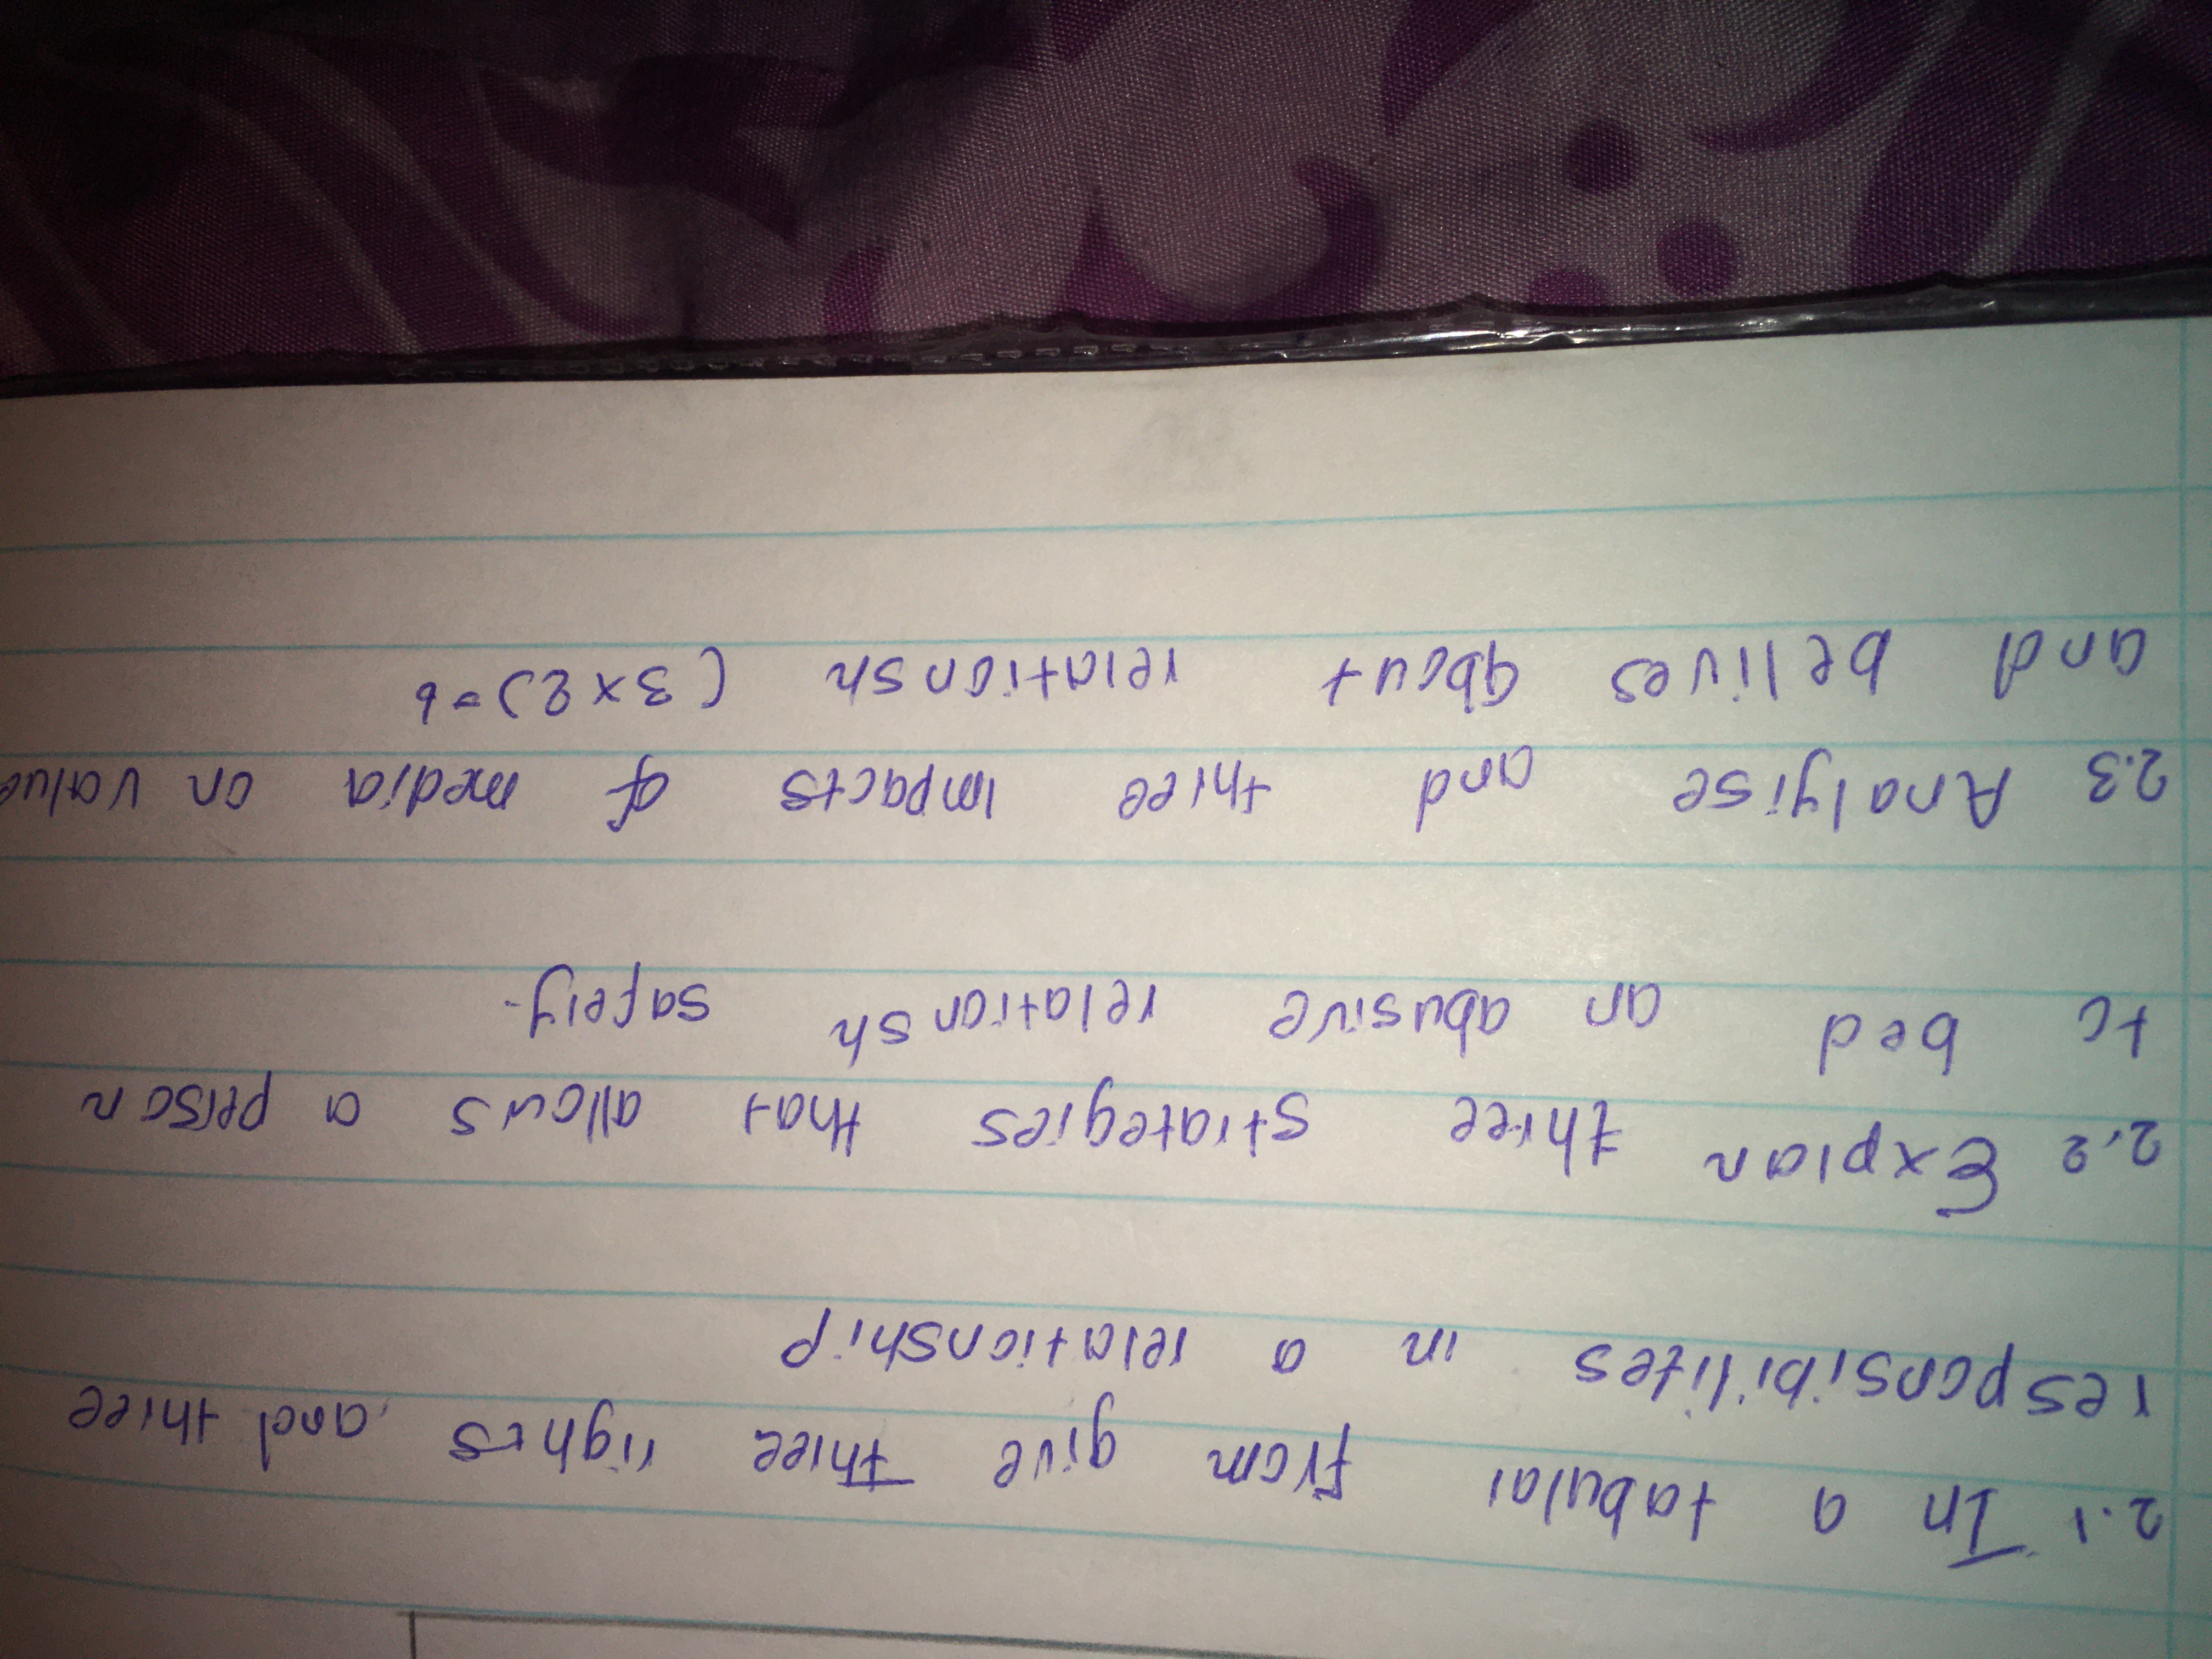 2.1 In a tabular from give three rights and three
responsibilites in a relationship
2.2 Explan three strategies that allows a person
to bed an abusive relationsh safely.
2.3 Analyise and three impacts of media on value
and belives about relationsh (3x2)=6